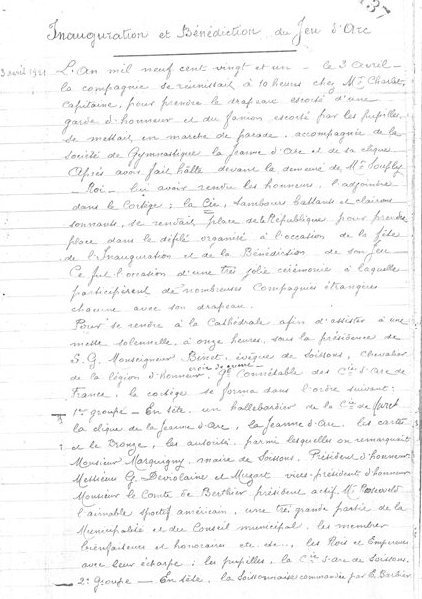 137
Inauguration et Bénédiction du Jeu d'Arc
3 avril 1921 L'An mil neuf cent vingt et un - le 3 Avril -
la compagnie se réunissait à 10 heures chez Mr Charlet,
Capitaine, pour prendre le drapeau escorté d'une
garde d'honneur et du fanion escorté par les pupilles
se mettait en marche de parade, accompagnée de la
Société de Gymnastique la Jeanne d'Arc et de sa clique.
Après avoir fait halte devant la demeure de Mr
- Roi - lui avoir rendu les honneurs, l'adjoindre
dans le Cortège ; la Cie, tambours battants et clairons
sonnants, se rendait place de la République pour prendre
place dans le défilé organisé à l'occasion de la fête
de l'Inauguration et de la Bénédiction de son Jeu -
Ce fut l'occasion d'une très jolie cérémonie à laquelle
participèrent de nombreuses Compagnies étrangères
chacune avec son drapeau.
Pour se rendre à la Cathédrale afin d'assister à une
messe solennelle, à onze heures, sous la présidence de
S. G. Monseigneur Binet, évêque de Soissons, chevalier
de la légion d'honneur, croix de guerre, Gd Connétable des Cies d'Arc de
France, le cortège se forma dans l'ordre suivant :
1er groupe - En tête, un hallebardier de la Cie de
la clique de la Jeanne d'Arc, la Jeanne d'Arc, les cartes
et le Bronze, les autorités parmi lesquelles on remarquait
Monsieur Marquigny, maire de Soissons, Président d'honneur
Messieurs G. Deviolaine et Muzart vices-président d'honneur
Monsieur le Comte de Bertier président actif Mr
l'aimable sportif américain, une très grande partie de la
Municipalité et du Conseil municipal, les membres
bienfaiteurs et honoraires etc. etc., les Rois et Empereurs
avec leur écharpe ; les pupilles, la Cie d'arc de Soissons.
2e Groupe - En tête, la Soissonnaise commandée par E. Barbier